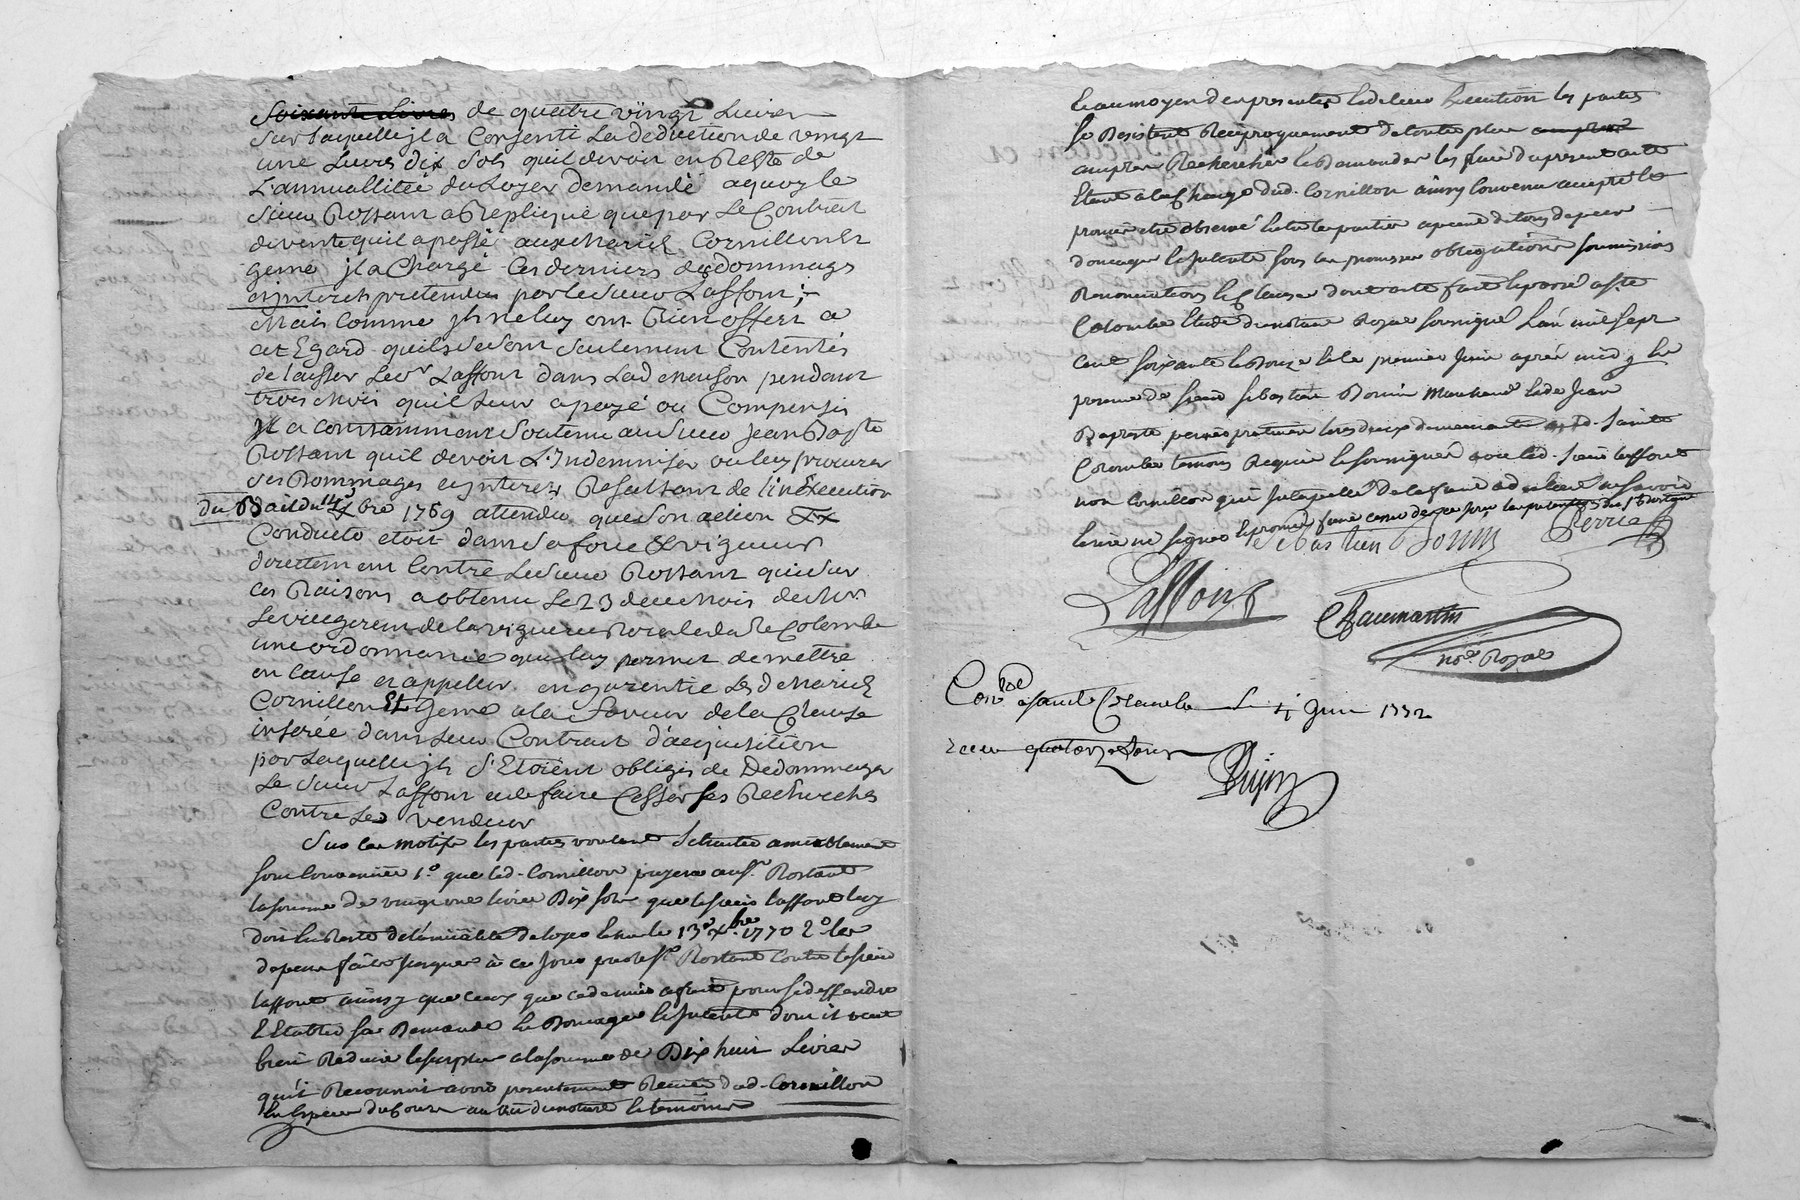 Soixante Livres de quatre vingt Livres
sur laquelle jl a Consenti La deduction de vingt
une Livres dix sols quil devoit en Reste de
L'annuallitée du Loyer demandé aquoy le
sieur Rostant a Repliqué que par Le Contrat
de vente quil a passé aux Mariés Cornillon et
geme jl a Chargé Ces derniers des dommages
et jnterets pretendus par le sieur Laffont ;
Mais comme jls ne luy ont Rien offert a
cet Egard quils se sont seulement Contentés
de laisser Le sr Laffont dans Lad maison pendant
trois Mois quil Leur a payé ou Compensés
Jl a constamment soutenu au sieur Jean Bapte
Rostant quil devoit L'Indemniser ou luy procurer
ses Dommages et jnterets Resultant de l'inExecution
du Bail du 14 xbre 1769 attendu que son action Ex
Conducto etoit dans sa force & vigueur
directement Contre Le sieur Rostant qui sur
ces Raisons a obtenu Le 23 de ce Mois de Mr
Le viegerent de la viguerie Royale de Ste Colombe
une ordonnance qui luy permet de mettre
en Cause et appeller en garentie Les d Mariés
Cornillon Et geme a la faveur de la Clause
inserée dans Leur Contrat d'acquisition
par Laquelle jls S'Etoient obligés de Dedommager
Le sieur Laffont et de faire Cesser ses Recherches
Contre Le vendeur
Sur ces motifs les parties voulant se traiter amiablement
sont Convenues 1.° que led. Cornillon payera au sr. Rostant
la somme de vingt une livres Dix sols que le sieur Laffont luy
doit du Reste de l'annualité de loyer echue le 13e xbre 1770 2.° les
depens faits jusques à ce jour par le sr Rostant Contre le sieur
Laffont ainsy que Ceux que ce dernier a fait pour se deffendre
Et Etablir sa Demande En Domages Et jnterets dont il veut
bien Reduire le surplus a la somme de Dix huit Livres
qu'il Reconnoit avoir presentement Receu dud. Cornillon
En Espece du Cours au vû du notaire Et temoins
Et au moyen des presentes Et de leur Execution les parties
se Desistent Reciproquement de toutes plus amples
amples Recherches Et Demandes les frais du present acte
Etant a la Charge dud. Cornillon ainsy Convenu accepté Et
promis etre observé Entre les parties a peine de tous depens
domages Et jnterets sous les promesses obligations soumissions
Renonciations Et Clauses dont acte fait Et passé a Ste
Colombe Etude du notaire Royal soussigné L'an mil sept
cent soixante Et douze Et le premier Juin après midy En
presence de sieur Sebastien Bonin Marchand Et de Jean
Baptiste perrie praticien tous deux demeurants aud. Sainte
Colombe temoins Requis Et soussignés avec led. sieur Laffont
non Cornillon qui jnterpellé De le faire a declaré ne savoir
Ecrire ne signer
Sebastien Bonin Perrie
Laffont
Chaumartin
nore. Royal
Conlé a sainte Colombe Le 4 Juin 1772
Receu quatorze sous